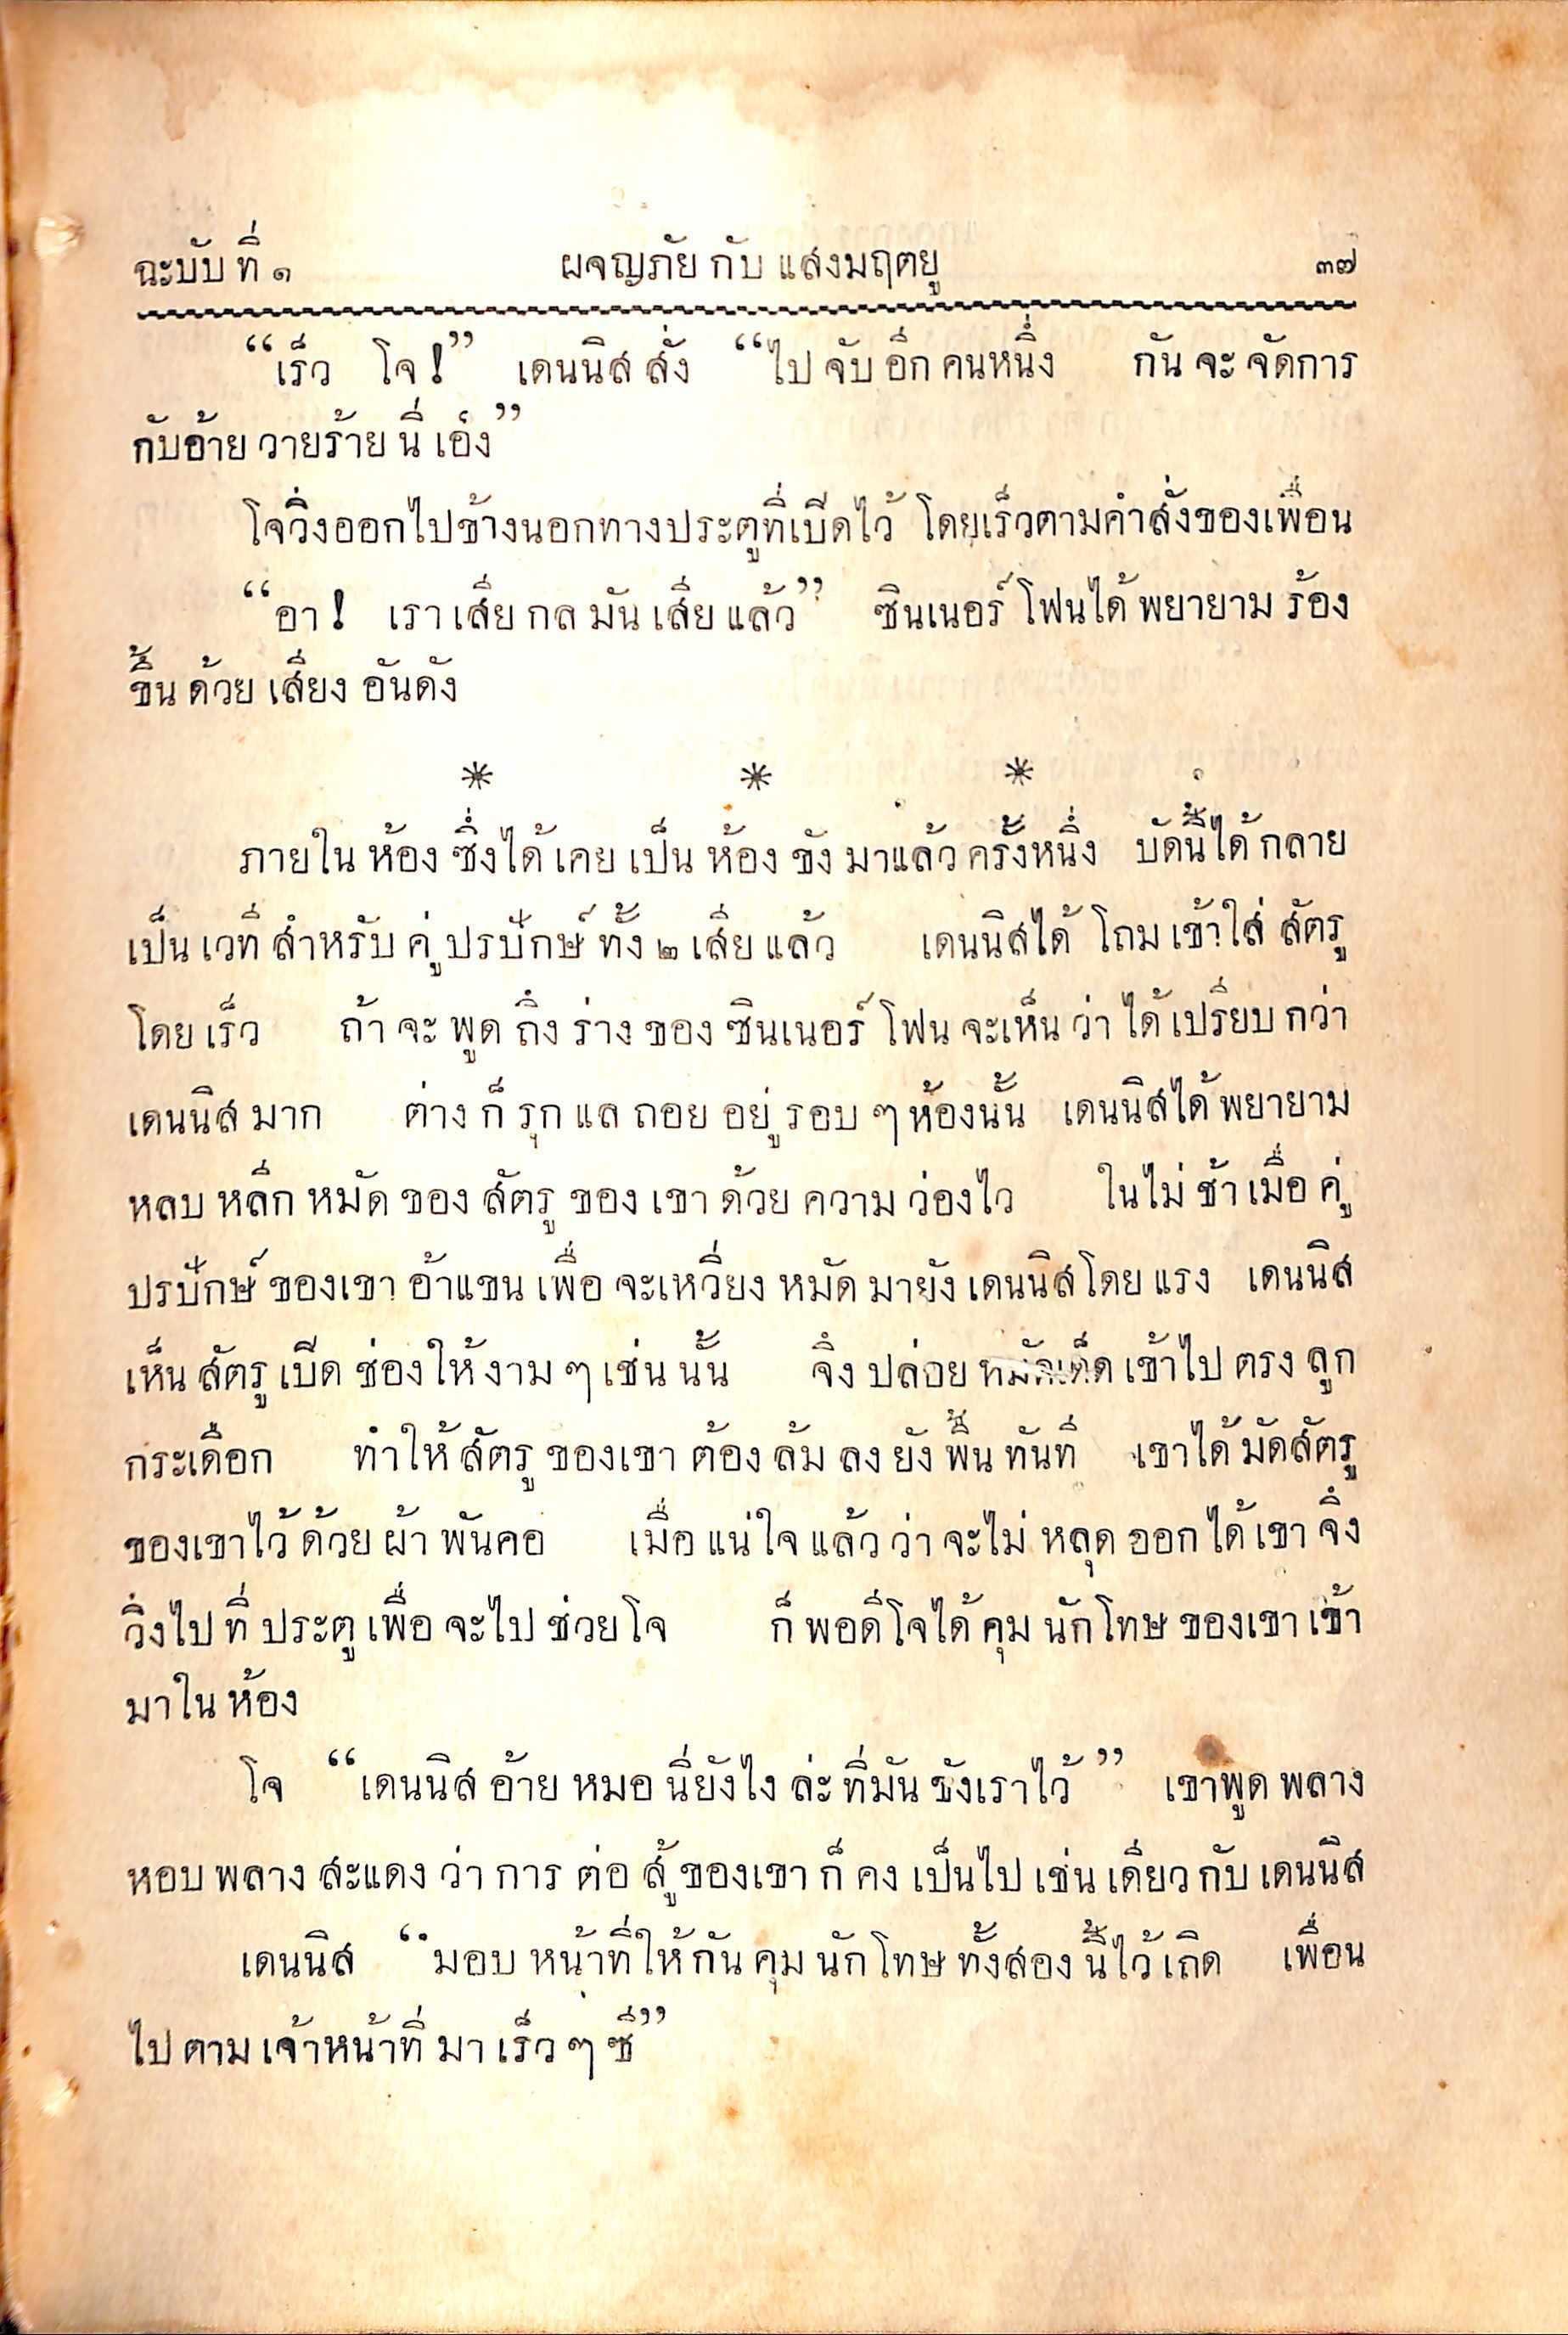 ฉะบับ ที่ ๑ ผจญภัย กับ แสงมฤตยู ๓๗
“เร็ว โจ!” เดนนิส สั่ง “ไป จับ อีก คนหนึ่ง กัน จะ จัดการ
กับอ้าย วายร้าย นี่ เอง”
โจวิ่งออกไปข้างนอกทางประตูที่เปิดไว้ โดยเร็วตามคำสั่งของเพื่อน
“อา! เรา เสีย กล มัน เสีย แล้ว” ซินเนอร์ โฟนได้ พยายาม ร้อง
ขึ้น ด้วย เสียง อันดัง
* * *
ภายใน ห้อง ซึ่งได้ เคย เป็น ห้อง ขัง มาแล้ว ครั้งหนึ่ง บัดนี้ได้ กลาย
เป็น เวที สำหรับ คู่ ปรปักษ์ ทั้ง ๒ เสีย แล้ว เดนนิสได้ โถม เข้าใส่ สัตรู
โดย เร็ว ถ้า จะ พูด ถึง ร่าง ของ ซินเนอร์ โฟน จะเห็น ว่า ได้ เปรียบ กว่า
เดนนิส มาก ต่าง ก็ รุก แล ถอย อยู่ รอบ ๆ ห้องนั้น เดนนิสได้ พยายาม
หลบ หลีก หมัด ของ สัตรู ของ เขา ด้วย ความ ว่องไว ในไม่ ช้า เมื่อ คู่
ปรปักษ์ ของเขา อ้าแขน เพื่อ จะเหวี่ยง หมัด มายัง เดนนิส โดย แรง เดนนิส
เห็น สัตรู เปิด ช่องให้ งาม ๆ เช่น นั้น จึง ปล่อย หมัดเด็ด เข้าไป ตรง ลูก
กระเดือก ทำให้ สัตรู ของเขา ต้อง ล้ม ลง ยัง พื้น ทันที เขาได้ มัดสัตรู
ของเขาไว้ ด้วย ผ้า พันคอ เมื่อ แน่ ใจ แล้ว ว่า จะไม่ หลุด ออก ได้ เขา จึง
วิ่งไป ที่ ประตู เพื่อ จะไป ช่วย โจ ก็ พอดีโจได้ คุม นักโทษ ของเขา เข้า
มาใน ห้อง
โจ “เดนนิส อ้าย หมอ นี่ยังไง ล่ะ ที่มัน ขังเราไว้” เขาพูด พลาง
หอบ พลาง สะแดง ว่า การ ต่อ สู้ ของเขา ก็ คง เป็นไป เช่น เดียว กับ เดนนิส
เดนนิส “มอบ หน้าที่ให้ กัน คุม นักโทษ ทั้งสอง นี้ไว้ เถิด เพื่อน
ไป ตาม เจ้าหน้าที่ มา เร็ว ๆ ซี”